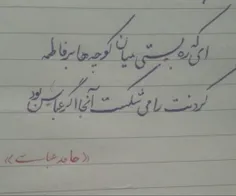 ای که ره بستی میان کوچه ها بر فاطمه
گردنت را می شکست آنجا اگر عباس بود
«حامد عباست»